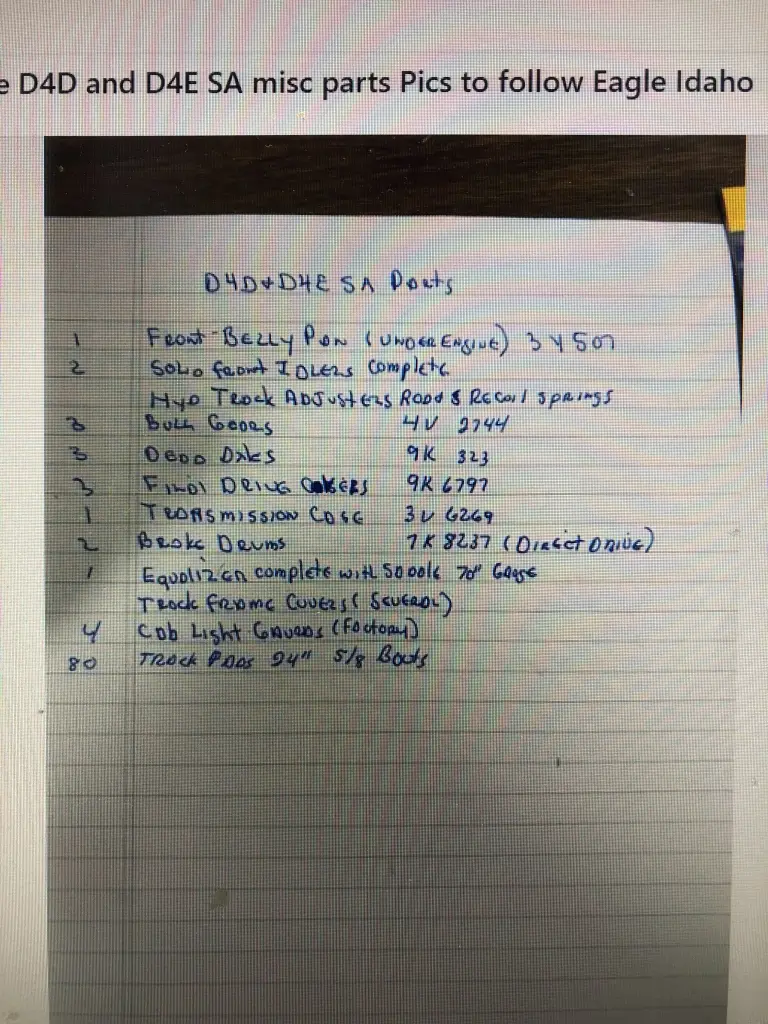 e D4D and D4E SA misc parts Pics to follow Eagle Idaho
D4D & D4E SA Parts
1 Front Belly Pan (Under Engine) 3Y507
2 Solo front Idlers complete
Hyd Track Adjusters Rods & Recoil springs
3 Bull Gears 4V 2744
3 Dead Axles 9K 323
3 Final Drive Cases 9K 6797
1 Transmission Case 3V 6269
2 Brake Drums 7K 8237 (Direct Drive)
1 Equalizer complete with saddle 70" Gauge
Track Frame Covers (Several)
4 Cab Light Guards (Factory)
80 Track Pads 24" 5/8 Bolts